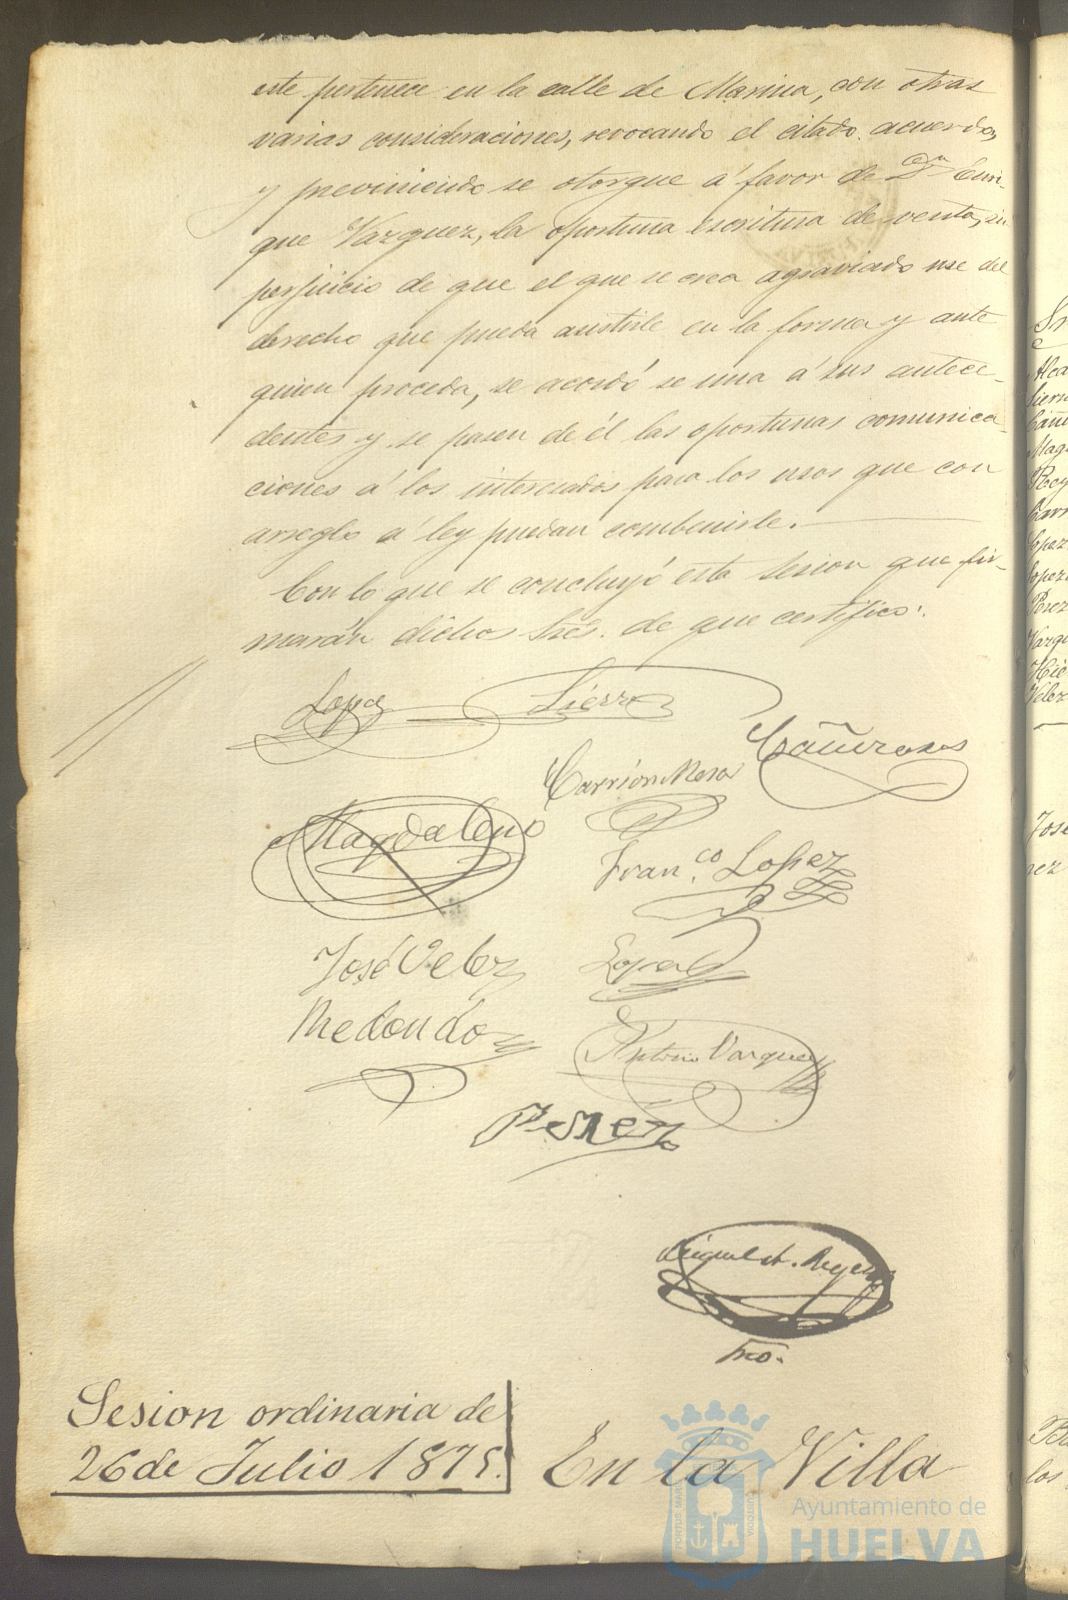 este pertenece en la calle de Marina, con otras
varias consideraciones, revocando el citado acuerdo,
y previniendo se otorgue á favor de Dn Enri-
que Vazquez, la oportuna escritura de venta, sin
perjuicio de que el que se crea agraviado use del
derecho que pueda asistirle en la forma y ante
quien proceda, se acordó se una á sus antece-
dentes y se pasen de él las oportunas comunica-
ciones á los interesados para los usos que con
arreglo á ley puedan combenirle.
Con lo que se concluyó esta sesion que fir-
marán dichos Sres. de que certifico.
Lopez Sierra
Cañizares
Carrion Mora
Magdaleno
Fran.co Lopez
José Velez
Lopez
Redondo
Antonio Vazquez
Perez
Miguel A. Reyes
Srio.
Sesion ordinaria de
26 de Julio 1875.
En la Villa
PORTUS MARIS
CUSTODIA
Ayuntamiento de
HUELVA
Alca
Sierra
Mag
Lopez
Lopez
Perez
Vazqu
Velez
José
los